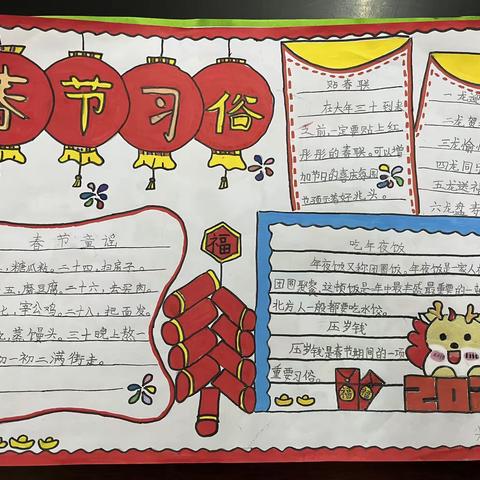 春节习俗
贴春联
在大年三十到来
之前,一定要贴上红
彤彤的春联,可以增
加节日的喜庆氛围
也预示着好兆头。
一龙迎
二龙贺
三龙愉
四龙同
五龙送福
六龙盘
春节童谣
,糖瓜粘。二十四,扫房子。
五,磨豆腐。二十六,去买肉。
七,宰公鸡。二十八,把面发。
蒸馒头。三十晚上熬一
初一初二满街走。
福
吃年夜饭
年夜饭又称团圆饭,年夜饭是一家人
团圆聚餐,这顿饭是年中最丰盛最重要的一
北方人一般都要吃水饺。
压岁钱
压岁钱是春节期间的一项
重要习俗。
福
福
202